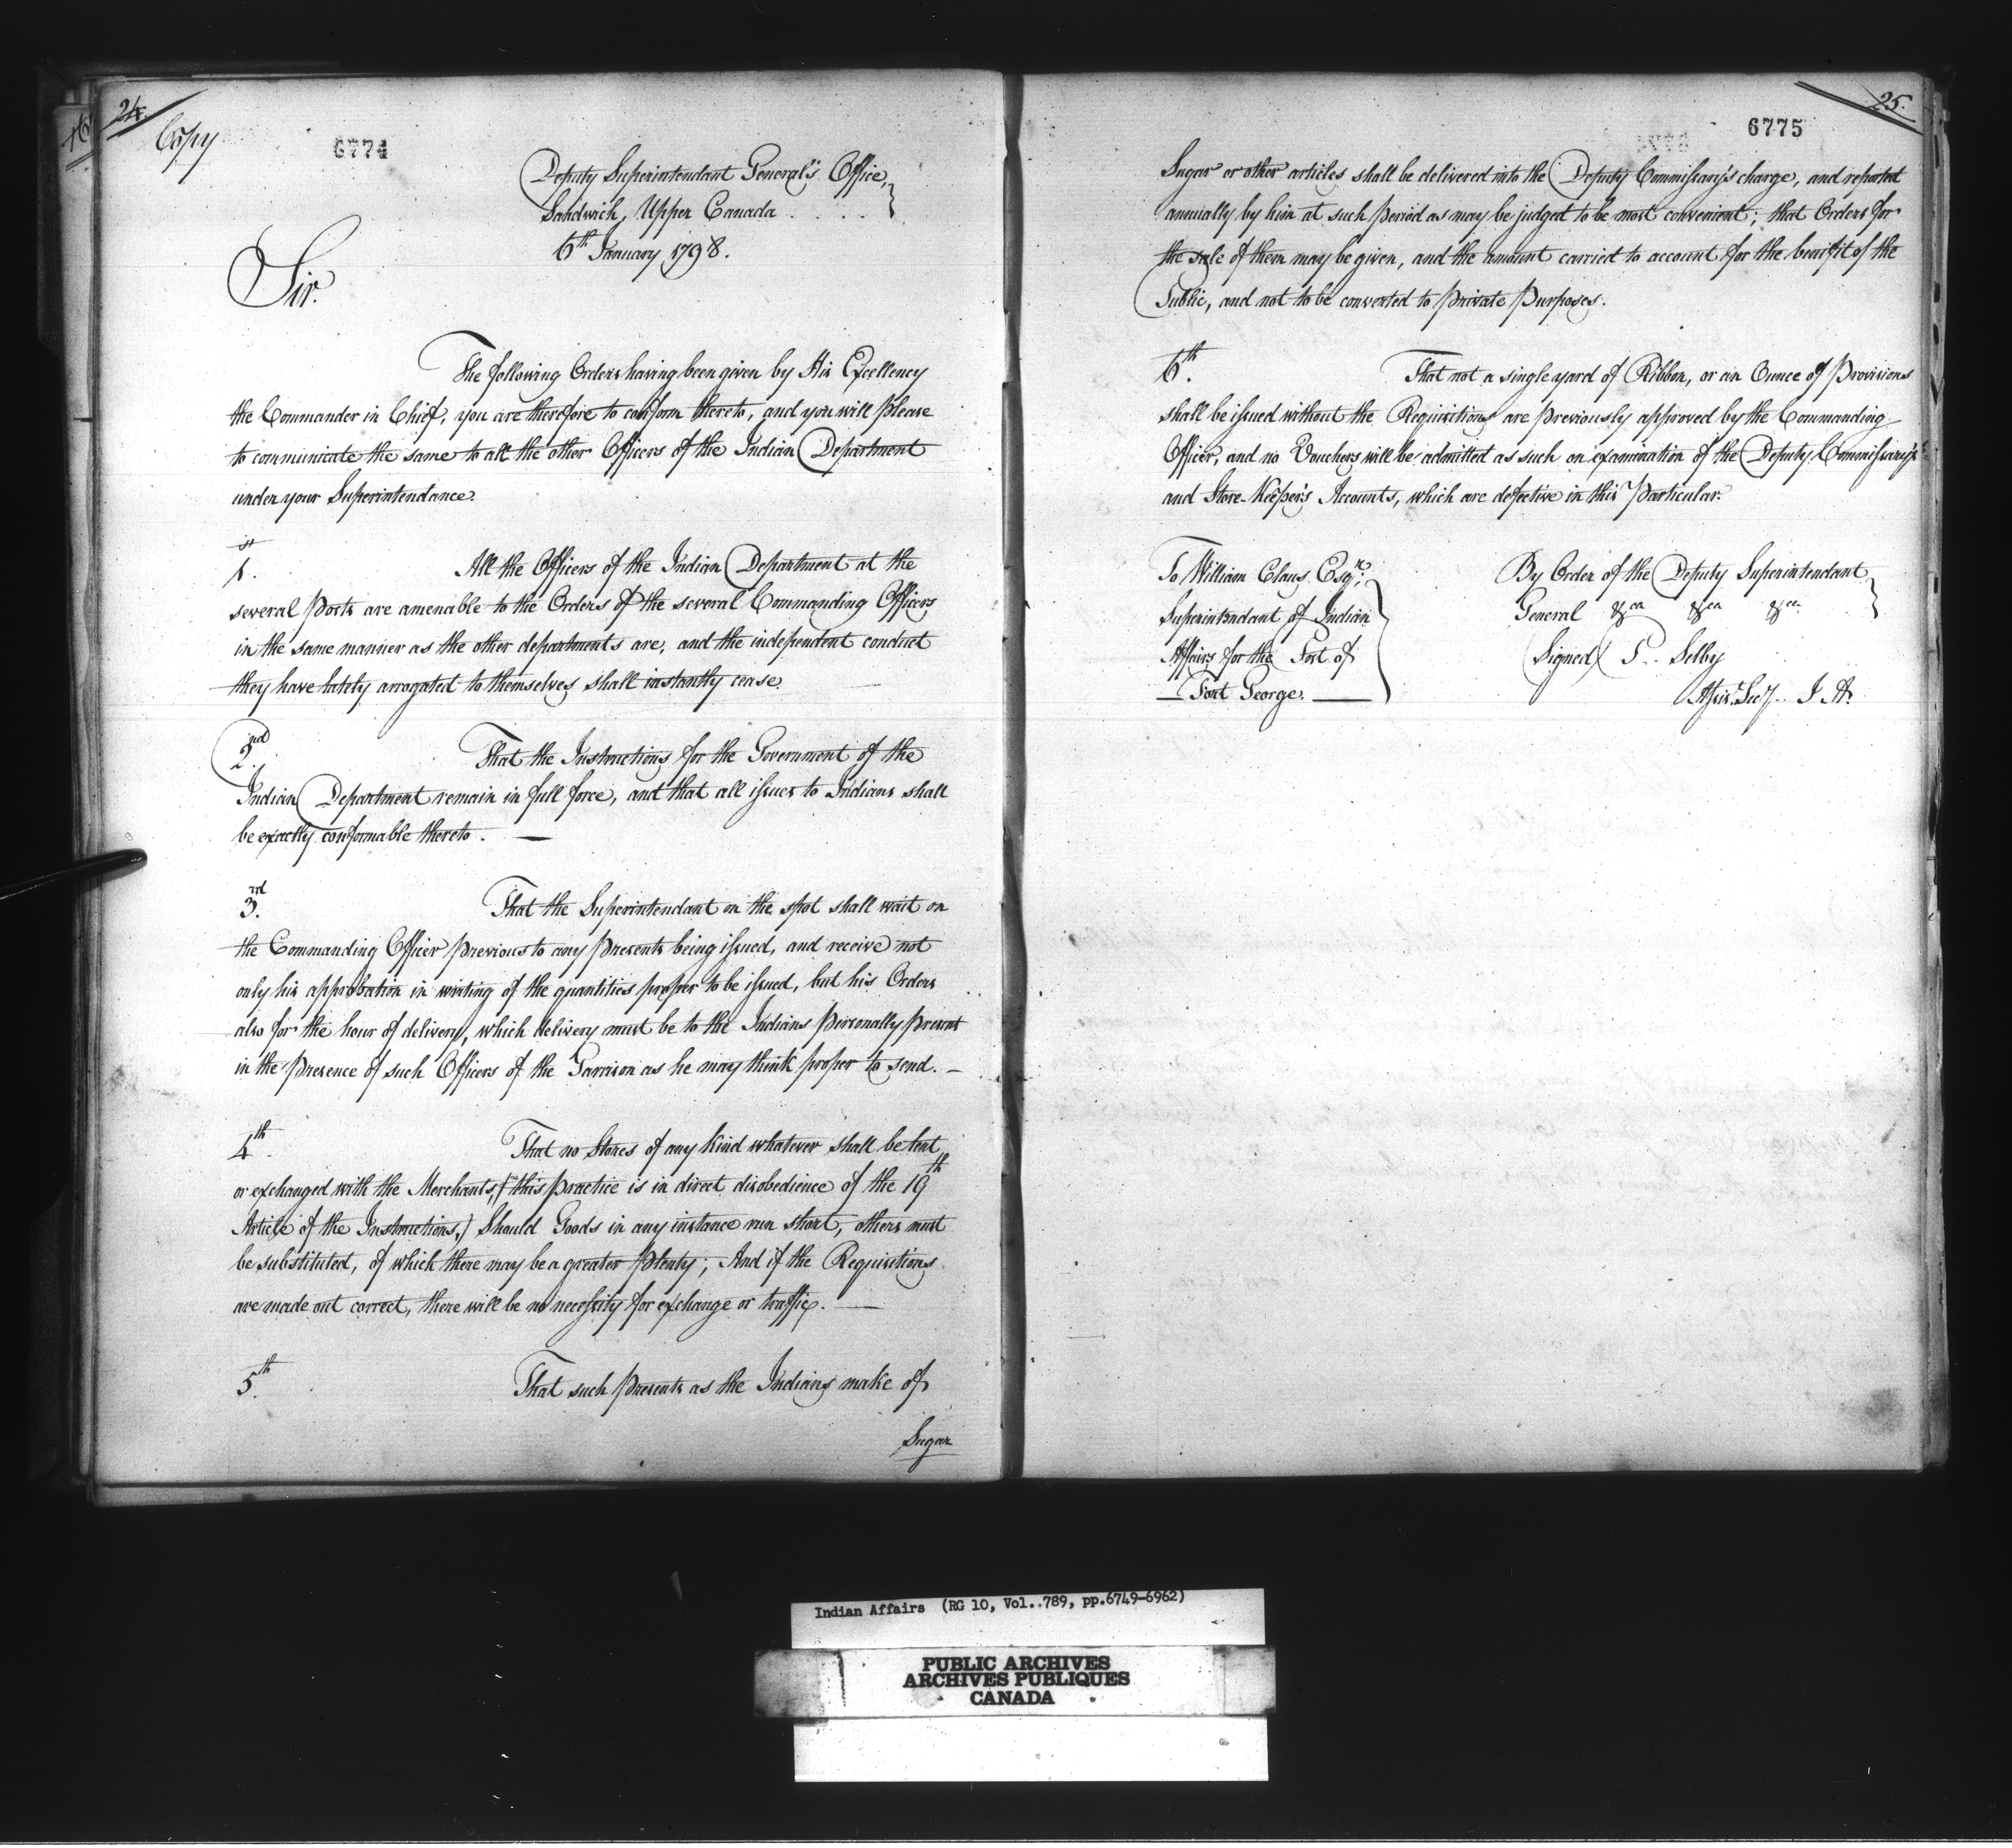 24.
Copy
6774
Deputy Superintendant General's Office,
Sandwich, Upper Canada . . . .
6th January 1798.
Sir.
The following Orders having been given by His Excellency
the Commander in Chief, you are therefore to conform thereto, and you will please
to communicate the same to all the other Officers of the Indian Department
under your Superintendance.
1st. All the Officers of the Indian Department at the
several Posts are amenable to the Orders of the several Commanding Officers,
in the same manner as the other departments are, and the independent conduct
they have lately, arrogated to themselves, shall instantly cease.
2nd. That the Instructions for the Government of the
Indian Department remain in full force, and that all issues to Indians shall
be exactly conformable thereto. —
3rd. That the Superintendant on the spot shall wait on
the Commanding Officer previous to any presents being issued, and receive not
only his approbation in writing of the quantities proper to be issued, but his Orders
also for the hour of delivery, which delivery must be to the Indians personally present
in the presence of such Officers of the Garrison as he may think proper to send. —
4th. That no Stores of any kind whatever shall be lent
or exchanged with the Merchants, (this practice is in direct disobedience of the 19th
Article of the Instructions,) Should Goods in any instance run short, others must
be substituted, of which there may be a greater plenty; And if the Requisitions
are made out correct, there will be no necessity for exchange or traffic. —
5th. That such presents as the Indians make of
Sugar
25.
6775
Sugar or other articles shall be delivered into the Deputy Commissary's charge, and reported
annually by him at such period as may be judged to be most convenient; that Orders for
the sale of them may be given, and the amount carried to account for the benifit of the
Public, and not to be converted to private purposes.
6th. That not a single yard of Ribbon, or an Ounce of Provisions
shall be issued without the Requisitions are previously approved by the Commanding
Officer, and no Vouchers will be admitted as such on examination of the Deputy Commissary's
and Store-Keeper's Accounts, which are defective in this Particular.
To William Claus Esqre.
Superintendant of Indian
Affairs for the Post of
— Fort George. —
By Order of the Deputy Superintendant
General &ca &ca &ca
(Signed) P. Selby
Assist. Secy. I A.
Indian Affairs (RG 10, Vol..789, pp.6749-6962)
PUBLIC ARCHIVES
ARCHIVES PUBLIQUES
CANADA